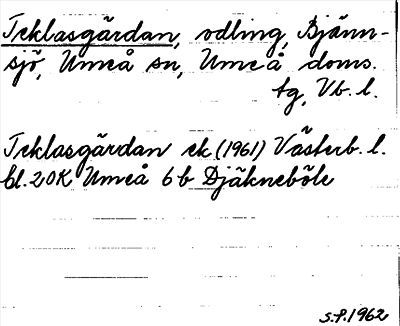 Teklasgärdan, odling, Bjänn-
sjö, Umeå sn, Umeå doms.
tg, Vb. l.
Teklasgärdan ek (1961) Västerb. l.
bl. 20K Umeå 6b Djäkneböle
S.P. 1962